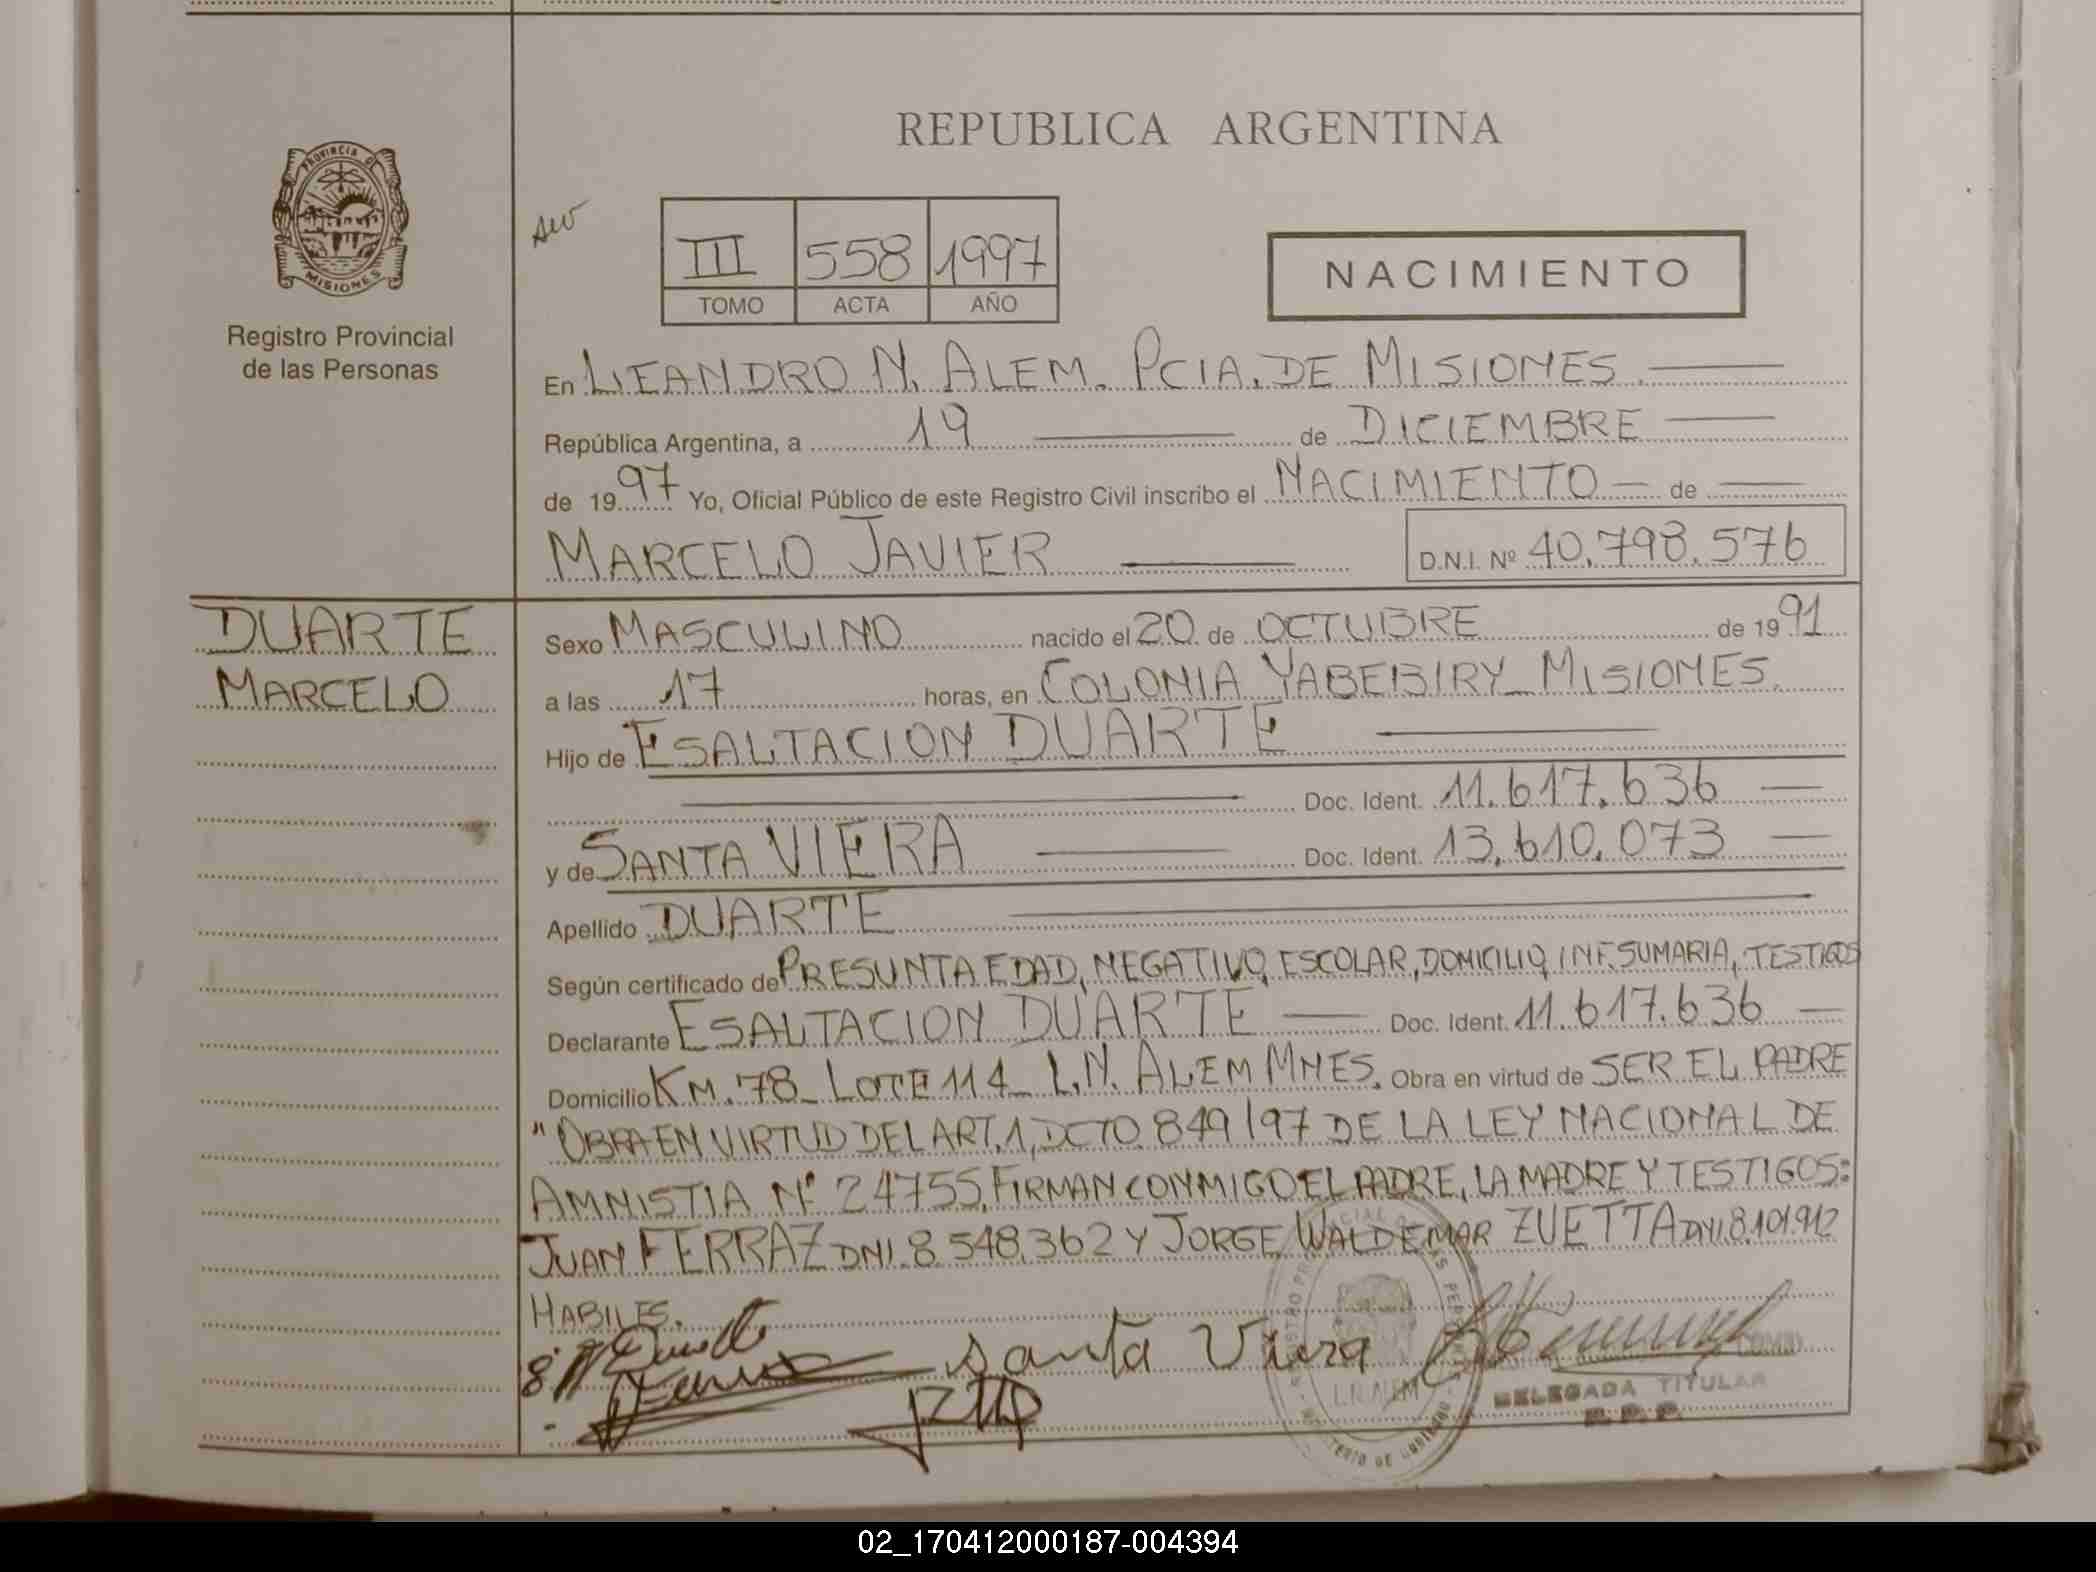 REPUBLICA ARGENTINA
PROVINCIA D
MISIONES
Registro Provincial
de las Personas
III 558 1997
TOMO ACTA AÑO
NACIMIENTO
En LEANDRO N. ALEM. PCIA. DE MISIONES.
República Argentina, a 19 de DICIEMBRE
de 1997 Yo, Oficial Público de este Registro Civil inscribo el NACIMIENTO de
MARCELO JAVIER D.N.I. Nº 40.798.576
DUARTE
MARCELO
Sexo MASCULINO nacido el 20 de OCTUBRE de 1991
a las 17 horas, en COLONIA YABEBIRY_ MISIONES.
Hijo de ESALTACION DUARTE
Doc. Ident. 11.617.636
y de SANTA VIERA Doc. Ident. 13.610.073
Apellido DUARTE
Según certificado de PRESUNTA EDAD, NEGATIVO, ESCOLAR, DOMICILIO, INF. SUMARIA, TESTIGOS
Declarante ESALTACION DUARTE Doc. Ident. 11.617.636
Domicilio KM. 78_ LOTE 114_ L.N. ALEM MNES. Obra en virtud de SER EL PADRE
"OBRA EN VIRTUD DEL ART. 1, DCTO. 849/97 DE LA LEY NACIONAL DE
AMNISTIA Nº 24755. FIRMAN CONMIGO EL PADRE, LA MADRE Y TESTIGOS:
JUAN FERRAZ DNI. 8.548.362 Y JORGE WALDEMAR ZUETTA DNI. 8.101.912
HABILES.
Santa Viera
L.N. ALEM
DELEGADA TITULAR
R. P. P.
02_170412000187-004394